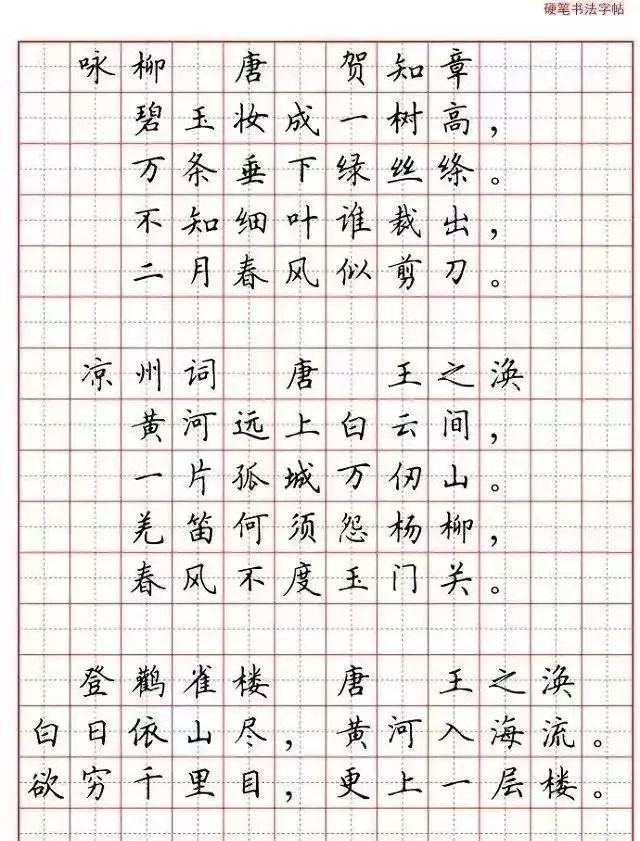 硬笔书法字帖
咏柳 唐 贺知章
碧玉妆成一树高，
万条垂下绿丝绦。
不知细叶谁裁出，
二月春风似剪刀。
凉州词 唐 王之涣
黄河远上白云间，
一片孤城万仞山。
羌笛何须怨杨柳，
春风不度玉门关。
登鹳雀楼 唐 王之涣
白日依山尽，黄河入海流。
欲穷千里目，更上一层楼。